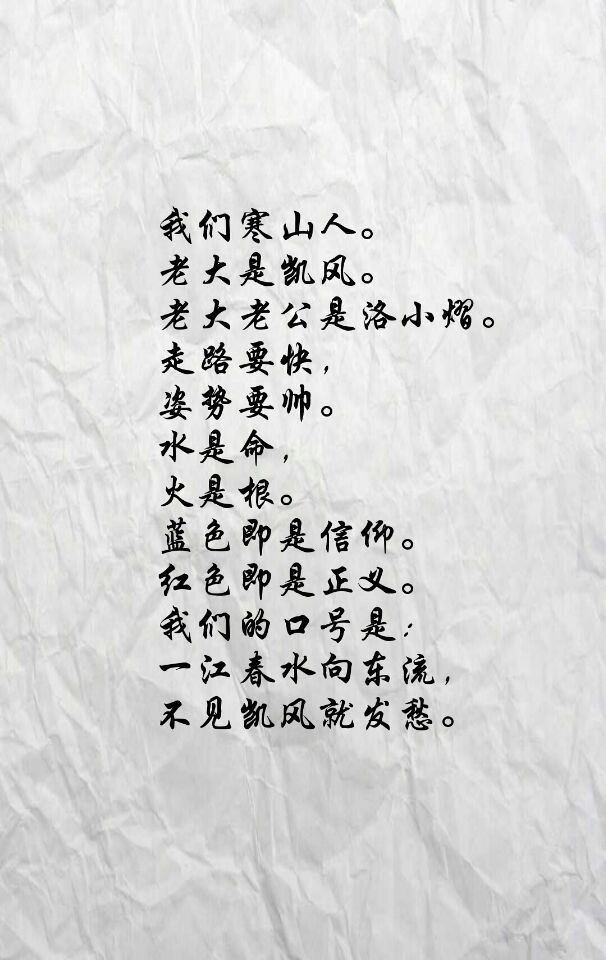 我们寒山人。
老大是凯风。
老大老公是洛小熠。
走路要快，
姿势要帅。
水是命，
火是根。
蓝色即是信仰。
红色即是正义。
我们的口号是：
一江春水向东流，
不见凯风就发愁。